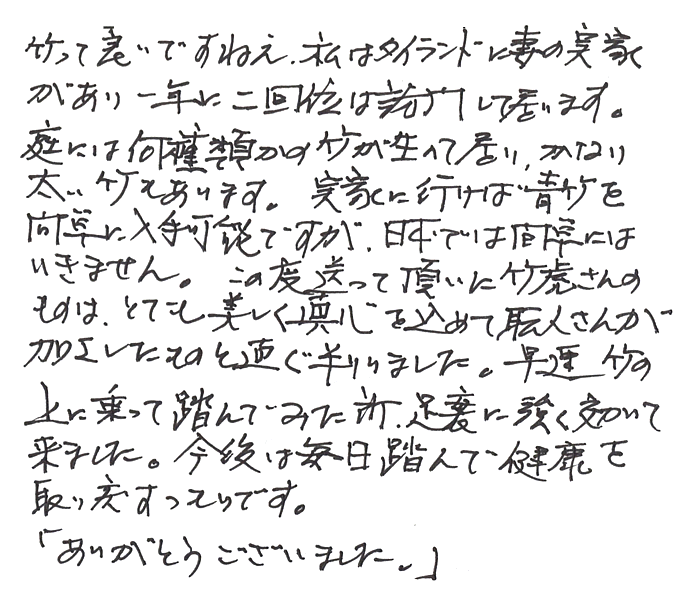 竹って良いですねえ、私はタイランドに妻の実家
があり一年に二回位は訪門して居ます。
庭には何種類かの竹が生えて居り、かなり
太い竹もあります。実家に行けば青竹を
簡単に入手可能ですが、日本では簡単には
いきません。この度送って頂いた竹虎さんの
ものは、とても美しく真心を込めて職人さんが
加工したものと直ぐ判りました。早速竹の
上に乗って踏んでみた所、足裏に強く効いて
来ました。今後は毎日踏んで健康を
取り戻すつもりです。
「ありがとうございました。」